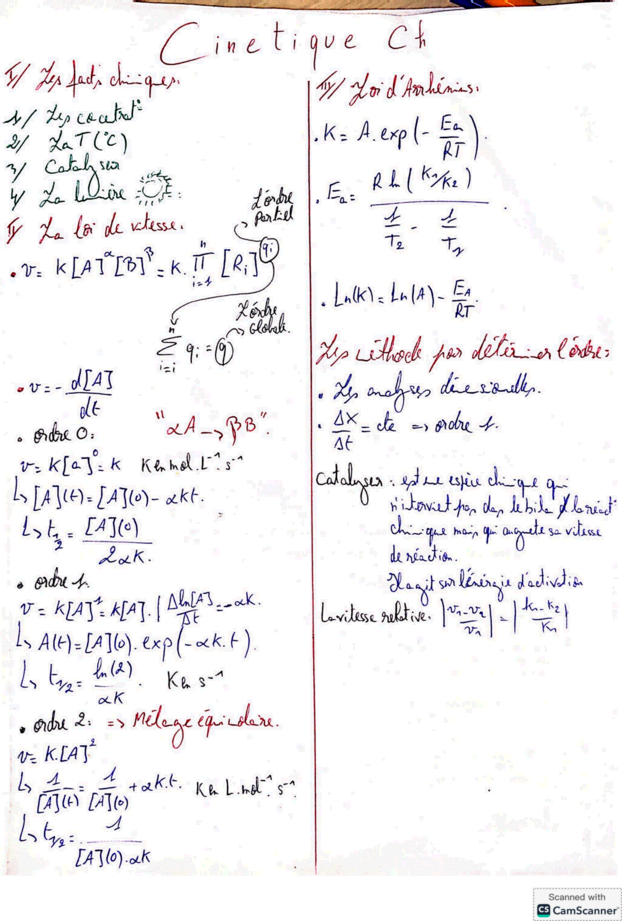 Cinetique Ch
I/ Les facts chimiques.
1/ Les cocentrat°
2/ La T(°C)
3/ Catalyseur
4/ La lumière
II/ La loi de vitesse.
L'ordre Partiel
• v = K[A]^α[B]^β = K. ∏_{i=1}^{n} [Ri]^{qi}
L'ordre Globale.
∑_{i=i}^{n} qi = q
• v = - d[A]/dt
• ordre 0: "αA → βB".
v = K[a]^0 = K K en mol.L^-1.s^-1
↳ [A](t) = [A](0) - αkt.
↳ t_{1/2} = [A](0)/2αK.
• ordre 1.
v = K[A]^1 = K[A]. | Δln[A]/Δt = -αK.
↳ A(t) = [A](0). exp(-αK.t).
↳ t_{1/2} = ln(2)/αK. K en s^-1
• ordre 2: => Mélage équimolaire.
v = K.[A]^2
↳ 1/[A](t) = 1/[A](0) + αK.t. K en L.mol^-1.s^-1
↳ t_{1/2} = 1/[A](0).αK
III/ Loi d'Arrhénius:
• K = A.exp(- Ea/RT).
• Ea = R ln(K1/K2) / (1/T2 - 1/T1).
• Ln(K) = Ln(A) - EA/RT.
Les méthode pour déterminer l'ordre:
• Les analyses dimensionelles.
• ΔX/Δt = cte => ordre 1.
Catalyser: est une espèce chimique qui
n'intervient pas das le bila d la réact°
chimique mais qui augmete sa vitesse
de réaction.
Il agit sur l'énérgie d'activation
La vitesse relative. |v1-v2/v1| = |k1-k2/K1|
Scanned with
CS CamScanner